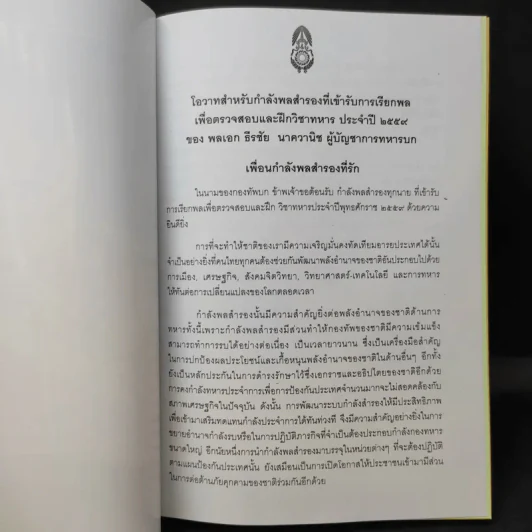 โอวาทสำหรับกำลังพลสำรองที่เข้ารับการเรียกพล
เพื่อตรวจสอบและฝึกวิชาทหาร ประจำปี ๒๕๕๙
ของ พลเอก ธีรชัย นาควานิช ผู้บัญชาการทหารบก
เพื่อนกำลังพลสำรองที่รัก
ในนามของกองทัพบก ข้าพเจ้าขอต้อนรับ กำลังพลสำรองทุกนาย ที่เข้ารับ
การเรียกพลเพื่อตรวจสอบและฝึก วิชาทหารประจำปีพุทธศักราช ๒๕๕๙ ด้วยความ
ยินดียิ่ง
การที่จะทำให้ชาติของเรามีความเจริญมั่นคงทัดเทียมอารยประเทศได้นั้น
จำเป็นอย่างยิ่งที่คนไทยทุกคนต้องช่วยกันพัฒนาพลังอำนาจของชาติอันประกอบไปด้วย
การเมือง, เศรษฐกิจ, สังคมจิตวิทยา, วิทยาศาสตร์-เทคโนโลยี และการทหาร
ให้ทันต่อการเปลี่ยนแปลงของโลกตลอดเวลา
กำลังพลสำรองนั้นมีความสำคัญยิ่งต่อพลังอำนาจของชาติด้านการ
ทหารทั้งนี้เพราะกำลังพลสำรองมีส่วนทำให้กองทัพของชาติมีความเข้มแข็ง
สามารถทำการรบได้อย่างต่อเนื่อง เป็นเวลายาวนาน ซึ่งเป็นเครื่องมือสำคัญ
ในการปกป้องผลประโยชน์และเกื้อหนุนพลังอำนาจของชาติในด้านอื่นๆ อีกทั้ง
ยังเป็นหลักประกันในการดำรงรักษาไว้ซึ่งเอกราชและอธิปไตยของชาติอีกด้วย
การคงกำลังทหารประจำการเพื่อการป้องกันประเทศจำนวนมากจะไม่สอดคล้องกับ
สภาพเศรษฐกิจในปัจจุบัน ดังนั้น การพัฒนาระบบกำลังสำรองให้มีประสิทธิภาพ
เพื่อเข้ามาเสริมทดแทนกำลังประจำการได้ทันท่วงที จึงมีความสำคัญอย่างยิ่งในการ
ขยายอำนาจกำลังรบหรือในการปฏิบัติภารกิจที่จำเป็นต้องประกอบกำลังกองทหาร
ขนาดใหญ่ อีกนัยหนึ่งการนำกำลังพลสำรองมาบรรจุในหน่วยต่างๆ ที่จะต้องปฏิบัติ
ตามแผนป้องกันประเทศนั้น ยังเสมือนเป็นการเปิดโอกาสให้ประชาชนเข้ามามีส่วน
ในการต่อต้านภัยคุกคามของชาติร่วมกันอีกด้วย